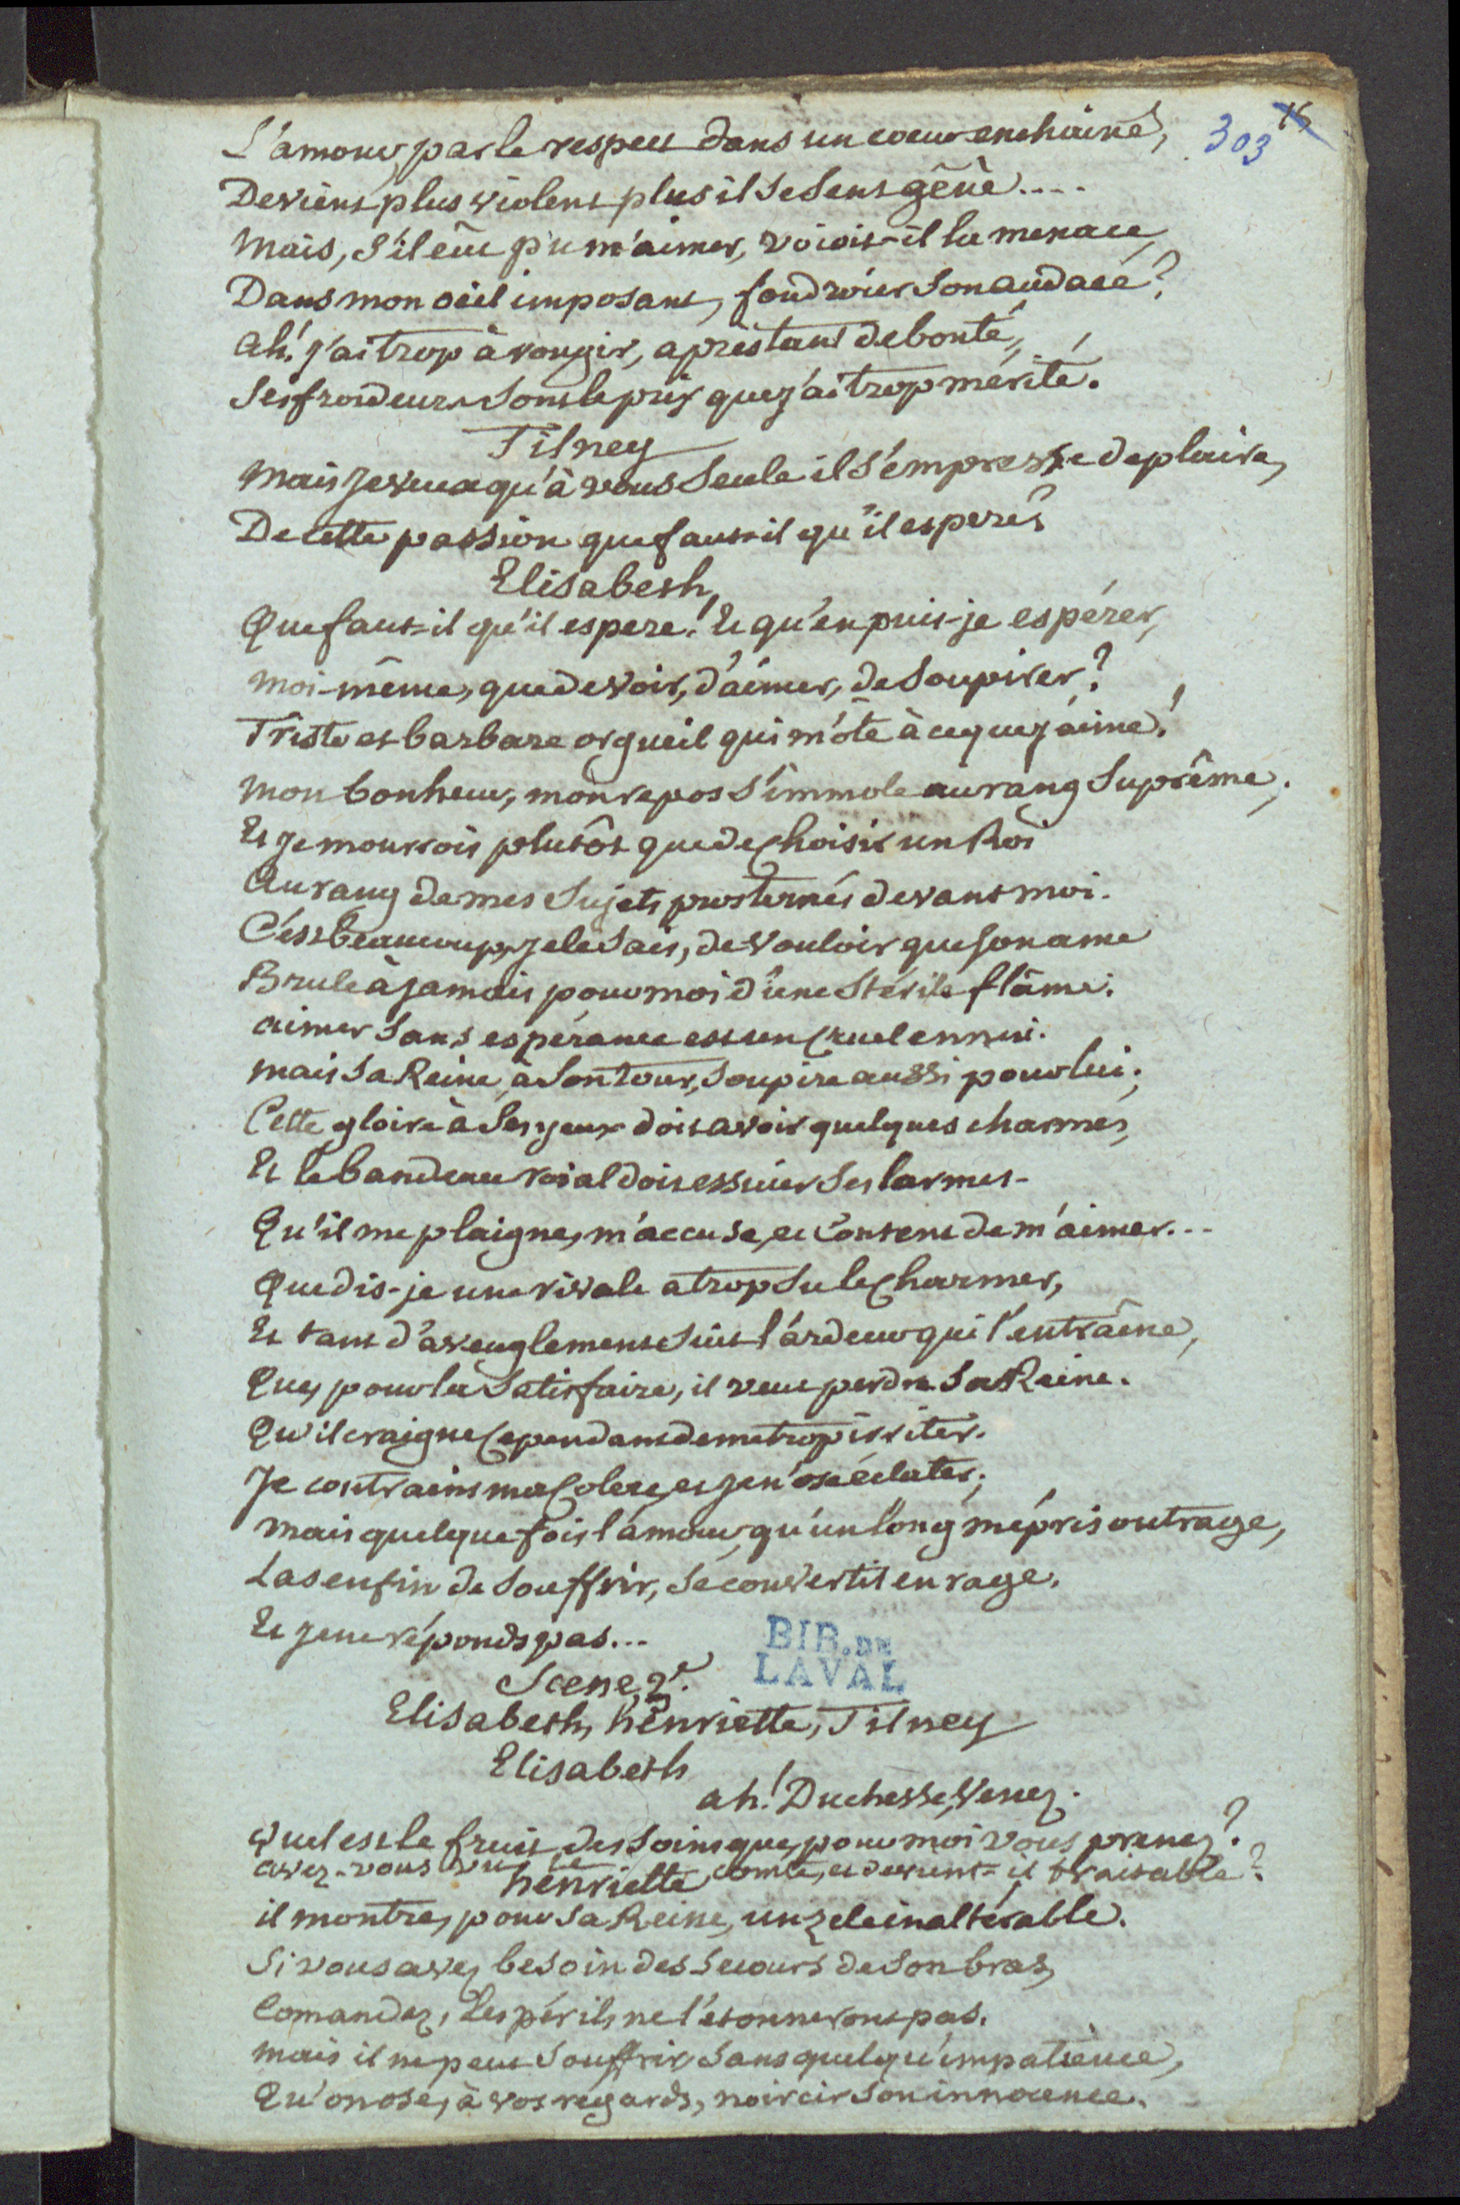 303 15
L'amour, par le respect dans un coeur enchainé,
Devient plus violent plus il se sent gêné....
Mais, s'il eût pu m'aimer, voioit-il la menace,
Dans mon oeil imposant, foudroier son audace?
ah! j'ai trop à rougir, après tant de bonté,
Ses froideurs sont le prix que j'ai trop mérité.
Tilney
Mais je vois qu'à vous seule il s'empresse de plaire,
De cette passion que faut-il qu'il espere?
Elisabeth,
Que faut-il qu'il espere! Et qu'en puis-je espérer,
moi-même, que de voir, d'aimer, de soupirer?
Triste et barbare orgueil qui m'ôte à ce que j'aime!
Mon bonheur, mon repos s'immole au rang suprême;
Et je mourrois plutôt que de choisir un Roi
Au rang de mes sujets prosternés devant moi.
C'est beaucoup, je le sais, de vouloir que son ame
Brule à jamais pour moi d'une stérile flâme.
aimer sans espérance est un cruel ennui.
mais sa Reine, à son tour, soupire aussi pour lui;
Cette gloire à ses yeux doit avoir quelques charmes,
Et le bandeau roial doit essuier ses larmes.
Qu'il me plaigne, m'accuse, et content de m'aimer...
Que dis-je une rivale a trop su le charmer,
Et tant d'aveuglement suit l'ardeur qui l'entraîne,
Que, pour la satisfaire, il veut perdre sa Reine.
Qu'il craigne cependant de me trop irriter.
Je contrains ma colere, et je n'ose éclater;
Mais quelque fois l'amour, qu'un long mépris outrage,
Las enfin de souffrir, se convertit en rage.
Et je ne réponds pas...
BIB. DE
LAVAL
Scene 2e.
Elisabeth, henriette, Tilney
Elisabeth
ah! Duchesse, venez.
Quel est le fruit des soins que, pour moi vous prenez?
avez-vous vu le comte, et devient-il traitable?
henriette
il montre, pour sa Reine, un zele inaltérable.
Si vous avez besoin des secours de son bras,
Comandez, les périls ne l'étonneront pas.
mais il ne peut souffrir sans quelqu'impatience,
Qu'on ose, à vos regards, noircir son innocence.